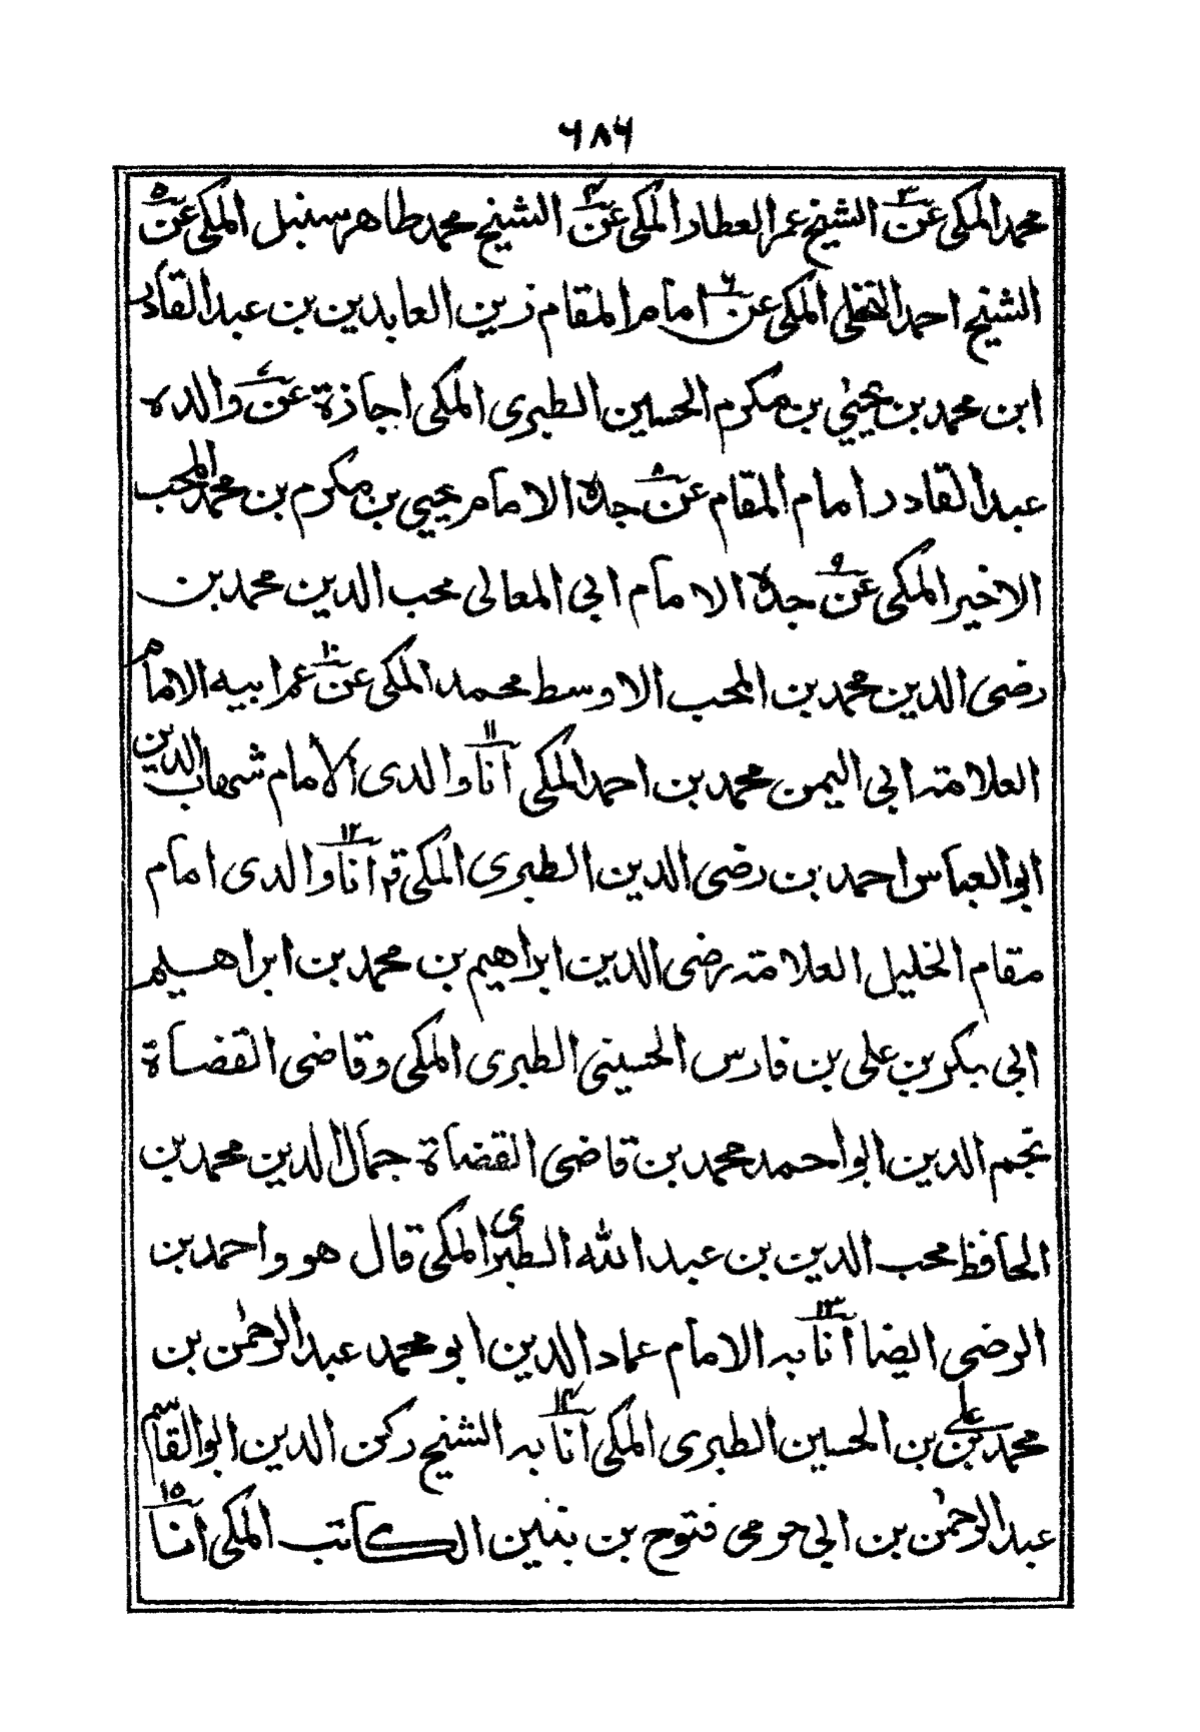 ٦٨٦
محمد المكى عن٣ الشيخ عمر العطار المكى عن٤ الشيخ محمد طاهر سنبل المكى عن٥
الشيخ احمد النخلى المكى عن٦ امام المقام زين العابدين بن عبد القادر
ابن محمد بن يحيٰى بن مكرم الحسين الطبرى المكى اجازة عن٧ والده
عبد القادر امام المقام عن٨ جده الامام يحيى بن مكرم بن محمد المحب
الاخير المكى عن٩ جده الامام ابى المعالى محب الدين محمد بن
رضى الدين محمد بن المحب الاوسط محمد المكى عن١٠ عم ابيه الامام
العلامة ابى اليمن محمد بن احمد المكى انا١١ والدى الأمام شهاب الدين
ابو العباس احمد بن رضى الدين الطبرى المكى قم انا١٢ والدى امام
مقام الخليل العلامة رضى الدين ابراهيم بن محمد بن ابراهيم
ابى بكر بن على بن فارس الحسينى الطبرى المكى وقاضى القضاة
نجم الدين ابو احمد محمد بن قاضى القضاة جمال الدين محمد بن
الحافظ محب الدين بن عبد الله الطبرى المكى قال هو واحمد بن
الرضى ايضا انا١٣ به الامام عماد الدين ابو محمد عبد الرحمٰن بن
محمد بن على بن الحسين الطبرى المكى انا١٤ به الشيخ ركن الدين ابو القاسم
عبد الرحمٰن بن ابى حرمى فتوح بن بنين الكاتب المكى انا١٥